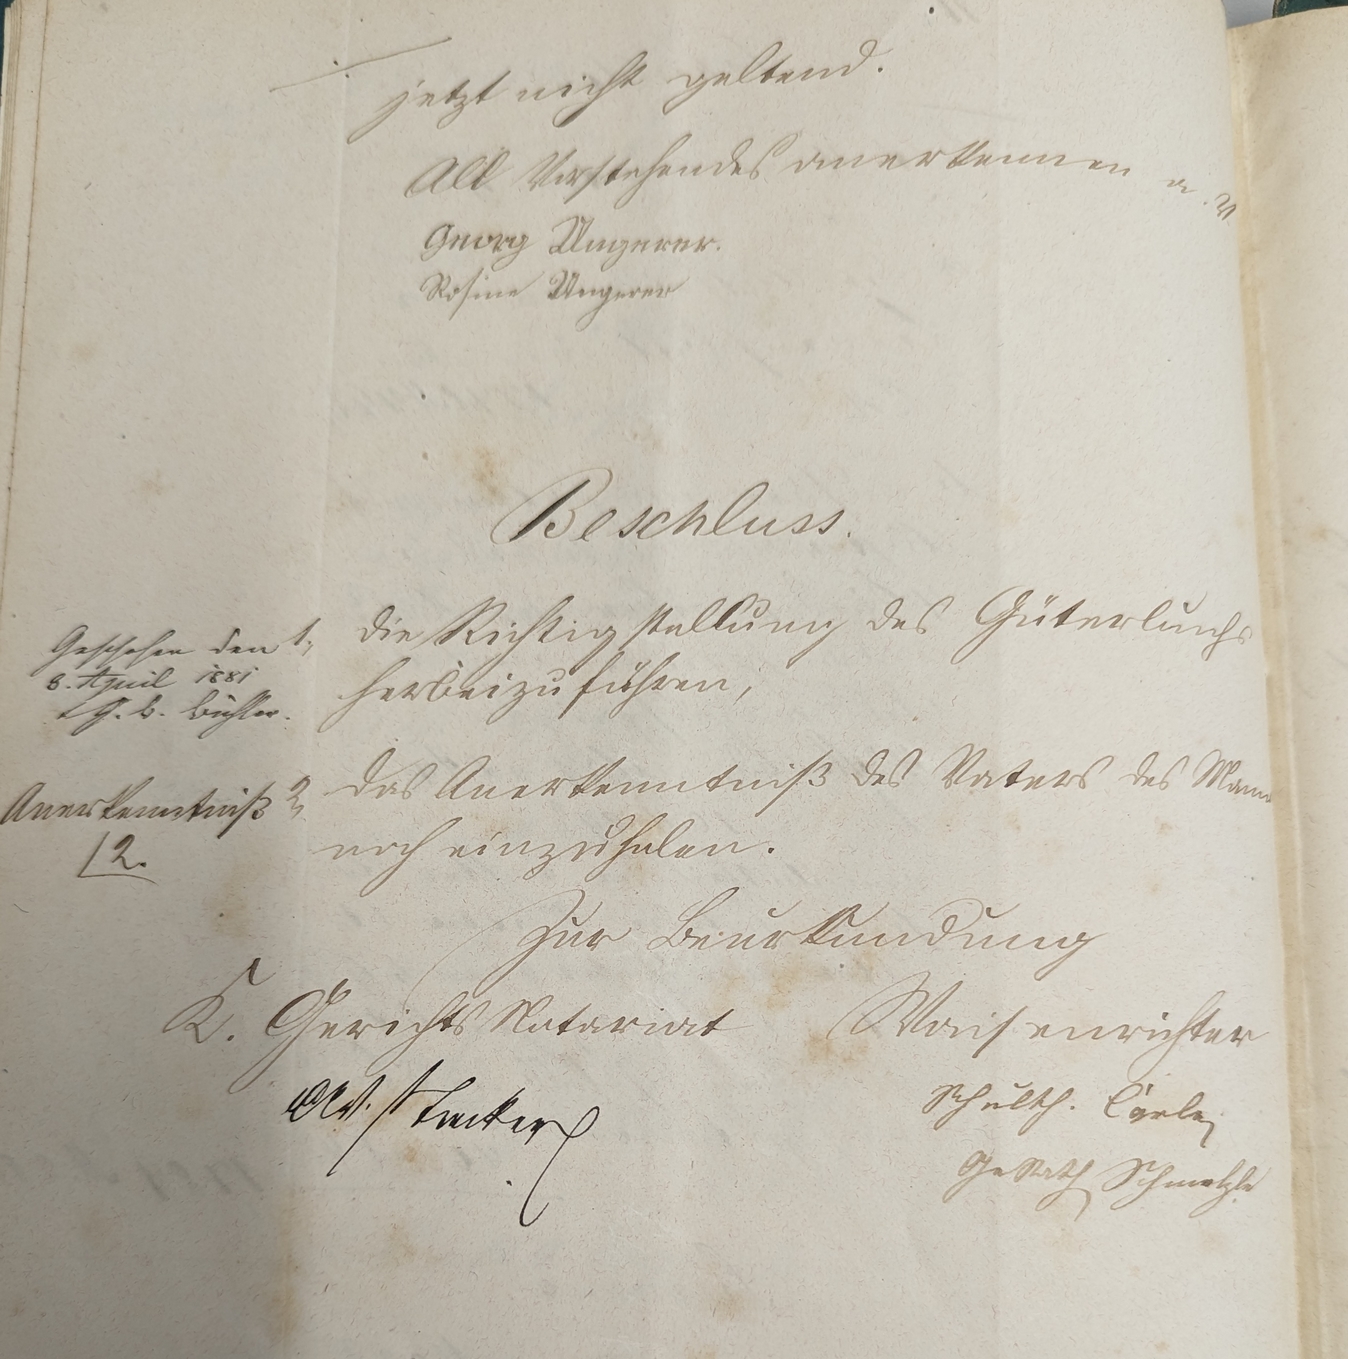 jetzt nicht geltend.
All Vorstehendes anerkennen
Georg Ungerer.
Rosine Ungerer
Beschluss.
Geschehen den
8. April 1881
Bühler.
1, die Richtigstellung des Güterbuchs
herbeizuführen,
Anerkenntniß
12.
2, das Anerkenntniß des Vaters des Mann
noch einzuholen.
Zur Beurkundung
K. GerichtsNotariat
Waisenrichter
Schulth.
GeRath Schmelzle